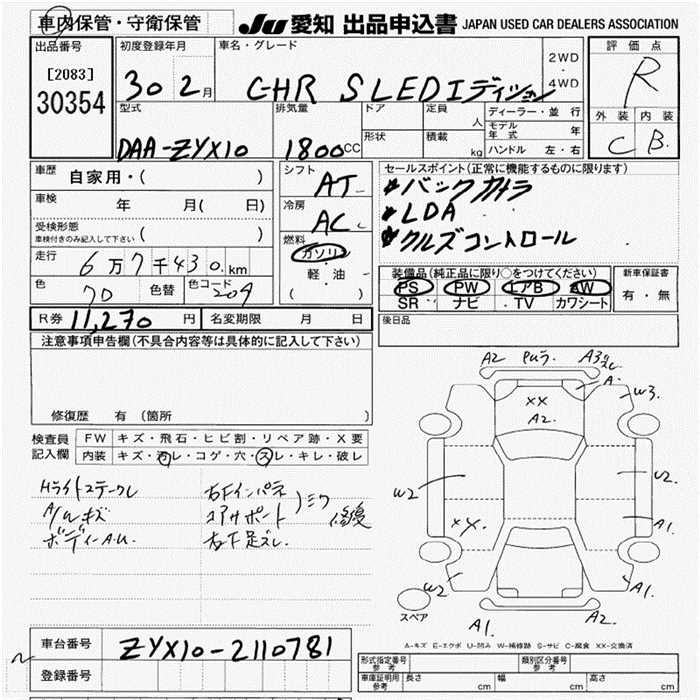 車内保管・守衛保管
JU 愛知 出品申込書 JAPAN USED CAR DEALERS ASSOCIATION
出品番号
[2083]
30354
初度登録年月
30 2月
車名・グレード
C-HR S LEDエディション
2WD
・
4WD
評価点
R
外装 内装
C B
型式
DAA-ZYX10
排気量
1800CC
ドア
形状
定員
人
積載
kg
ディーラー・並行
モデル年式 年
ハンドル 左・右
車歴
自家用・( )
車検 年 月( 日)
受検形態
車検付きのみ記入して下さい ( )
走行
6万7千430km
色
色替
色コード
209
シフト
AT
冷房
AC
燃料
ガソリン
・
軽油
( )
セールスポイント(正常に機能するものに限ります)
バックカメラ
LDA
クルズコントロール
装備品(純正品に限り○をつけてください)
PS PW エアB AW
SR ナビ TV カワシート
新車保証書
有・無
R券 11,270円
名変期限 月 日
後日品
注意事項申告欄(不具合内容等は具体的に記入して下さい)
修復歴 有(箇所 )
検査員
記入欄
FW キズ・飛石・ヒビ割・リペア跡・X要
内装 キズ・汚レ・コゲ・穴・スレ・キレ・破レ
Hライトステークレ
A/Wキズ
ボディーA.U.
右Fインパネ
コアサポート
右下足ズレ
修復
A2
A
W3
XX
A2.
W2
U2.
XX.
A1.
W2
A1.
A1.
A2.
スペア
A-キズ E-エクボ U-凹み W-補修跡 S-サビ C-腐食 XX-交換済
車台番号
ZYX10-2110781
登録番号
形式指定番号
参考
類別区分番号
参考
車庫証明用
参考
長さ cm
幅 cm
高さ cm